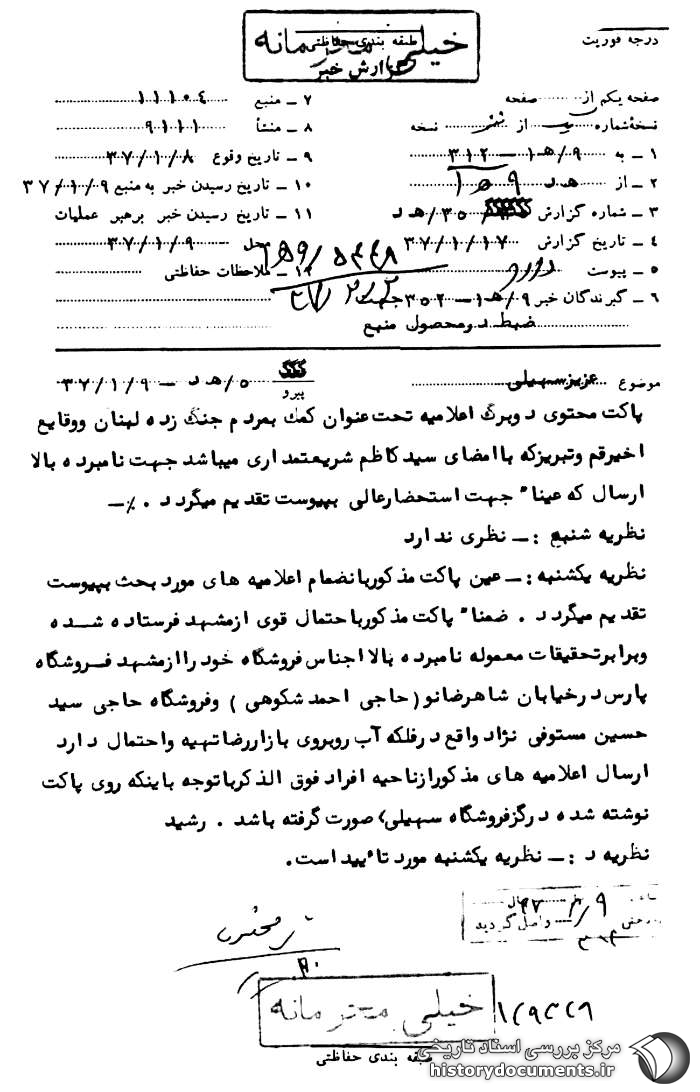 خیلی محرمانه
طبقه بندی حفاظتی
گزارش خبر
درجه فوریت
صفحه یکم از صفحه
نسخه شماره از نسخه
۱ ــ به ۹/هـ۱ ــ ۳۱۲
۲ ــ از هـ د
۳ ــ شماره گزارش /هـ د
۴ ــ تاریخ گزارش ۳۷/۱/۱۷
۵ ــ پیوست دارد
۶ ــ گیرندگان خبر ۹/هـ۱ ــ ۳۵۲ جهت
ضبط د رمحصول منبع
۷ ــ منبع ۱۱۱۰۴
۸ ــ منشأ ۹۱۱۱
۹ ــ تاریخ وقوع ۳۷/۱/۸
۱۰ ــ تاریخ رسیدن خبر به منبع ۳۷/۱/۹
۱۱ ــ تاریخ رسیدن خبر برهبر عملیات
محل ۳۷/۱/۹
۱۲ ــ ملاحظات حفاظتی
موضوع عزیزسهیلی
پیرو ۵/هـ د ــ ۳۷/۱/۹
پاکت محتوی د وبرگ اعلامیه تحت عنوان کمک بمردم جنگ زده لبنان ووقایع
اخیرقم وتبریزکه باامضای سید کاظم شریعتمداری میباشد جهت نامبرده بالا
ارسال که عیناً جهت استحضارعالی بپیوست تقدیم میگردد . ٪ــ
نظریه شنبه : ــ نظری ندارد
نظریه یکشنبه : ــ عین پاکت مذکوربانضمام اعلامیه های مورد بحث بپیوست
تقدیم میگردد . ضمناً پاکت مذکورباحتمال قوی ازمشهد فرستاده شده
وبرابرتحقیقات معموله نامبرده بالا اجناس فروشگاه خود راازمشهد فروشگاه
پارس درخیابان شاهرضانو (حاجی احمد شکوهی ) وفروشگاه حاجی سید
حسین مستوفی نژاد واقع درفلکه آب روبروی بازاررضا تهیه واحتمال دارد
ارسال اعلامیه های مذکورازناحیه افراد فوق الذکرباتوجه باینکه روی پاکت
نوشته شده درگزفروشگاه سهیلی، صورت گرفته باشد . رشید
نظریه د : ــ نظریه یکشنبه مورد تأیید است.
واصل گردید
خیلی محرمانه
طبقه بندی حفاظتی
مرکز بررسی اسناد تاریخی
historydocuments.ir